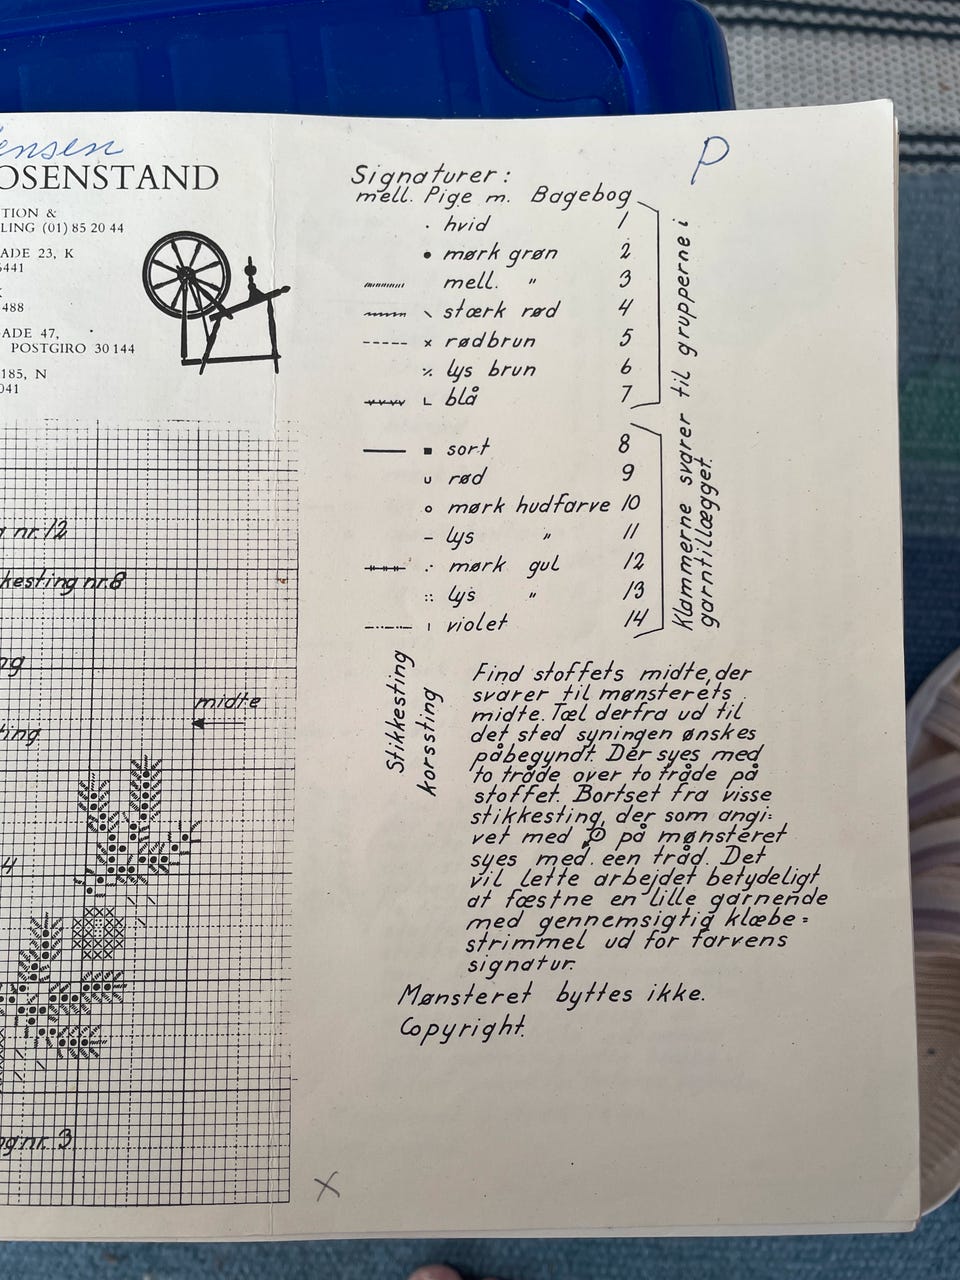 ensen
OSENSTAND
TION &
LING (01) 85 20 44
ADE 23, K
6441
K
488
ADE 47,
POSTGIRO 30 144
185, N
041
P
Signaturer:
mell. Pige m. Bagebog
. hvid 1
● mørk grøn 2
mell. " 3
\ stærk rød 4
x rødbrun 5
٪ lys brun 6
L blå 7
■ sort 8
u rød 9
o mørk hudfarve 10
– lys " 11
∴ mørk gul 12
:: lys " 13
ı violet 14
Klammerne svarer til grupperne i
garntillægget.
Stikkesting
korssting
g nr. 12
kesting nr. 8
ng
ting
midte
4
ng nr. 3
Find stoffets midte, der
svarer til mønsterets
midte. Tæl derfra ud til
det sted syningen ønskes
påbegyndt. Der syes med
to tråde over to tråde på
stoffet. Bortset fra visse
stikkesting, der som angi=
vet med på mønsteret
syes med. een tråd. Det
vil lette arbejdet betydeligt
at fæstne en lille garnende
med gennemsigtig klæbe=
strimmel ud for farvens
signatur.
Mønsteret byttes ikke.
Copyright.
X